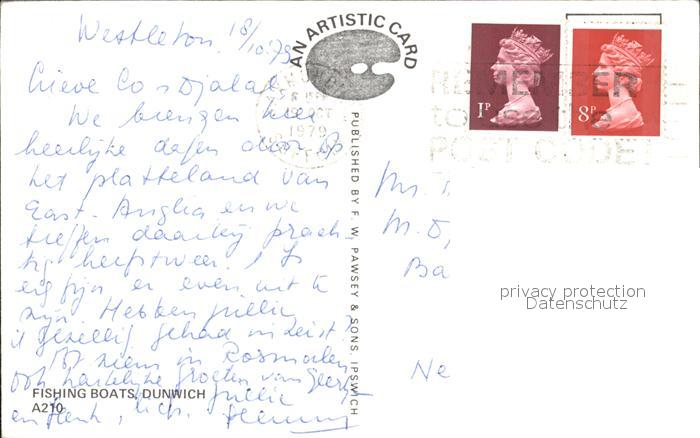 Westleton, 18/10.79
Lieve Co & Djalal
We brengen hier
heerlijke dagen door op
het platteland van
East-Anglia en we
treffen daarbij prach-
tig herfstweer. 't Is
erg fijn er even uit te
zijn. Hebben jullie
't gezellig gehad in Zeist?
Tot ziens in Rosmalen,
ook hartelijke groeten van
en Henk, jullie
FISHING BOATS, DUNWICH
A210
AN ARTISTIC CARD
PUBLISHED BY F. W. PAWSEY & SONS, IPSWICH
OCT
1979
1P
8P
REMEMBER
to use the
POST CODE
Mr.
M. D
Ba
Ne
privacy protection
Datenschutz